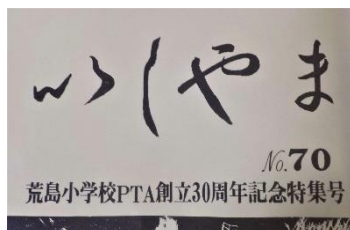 いしやま
No.70
荒島小学校PTA創立30周年記念特集号